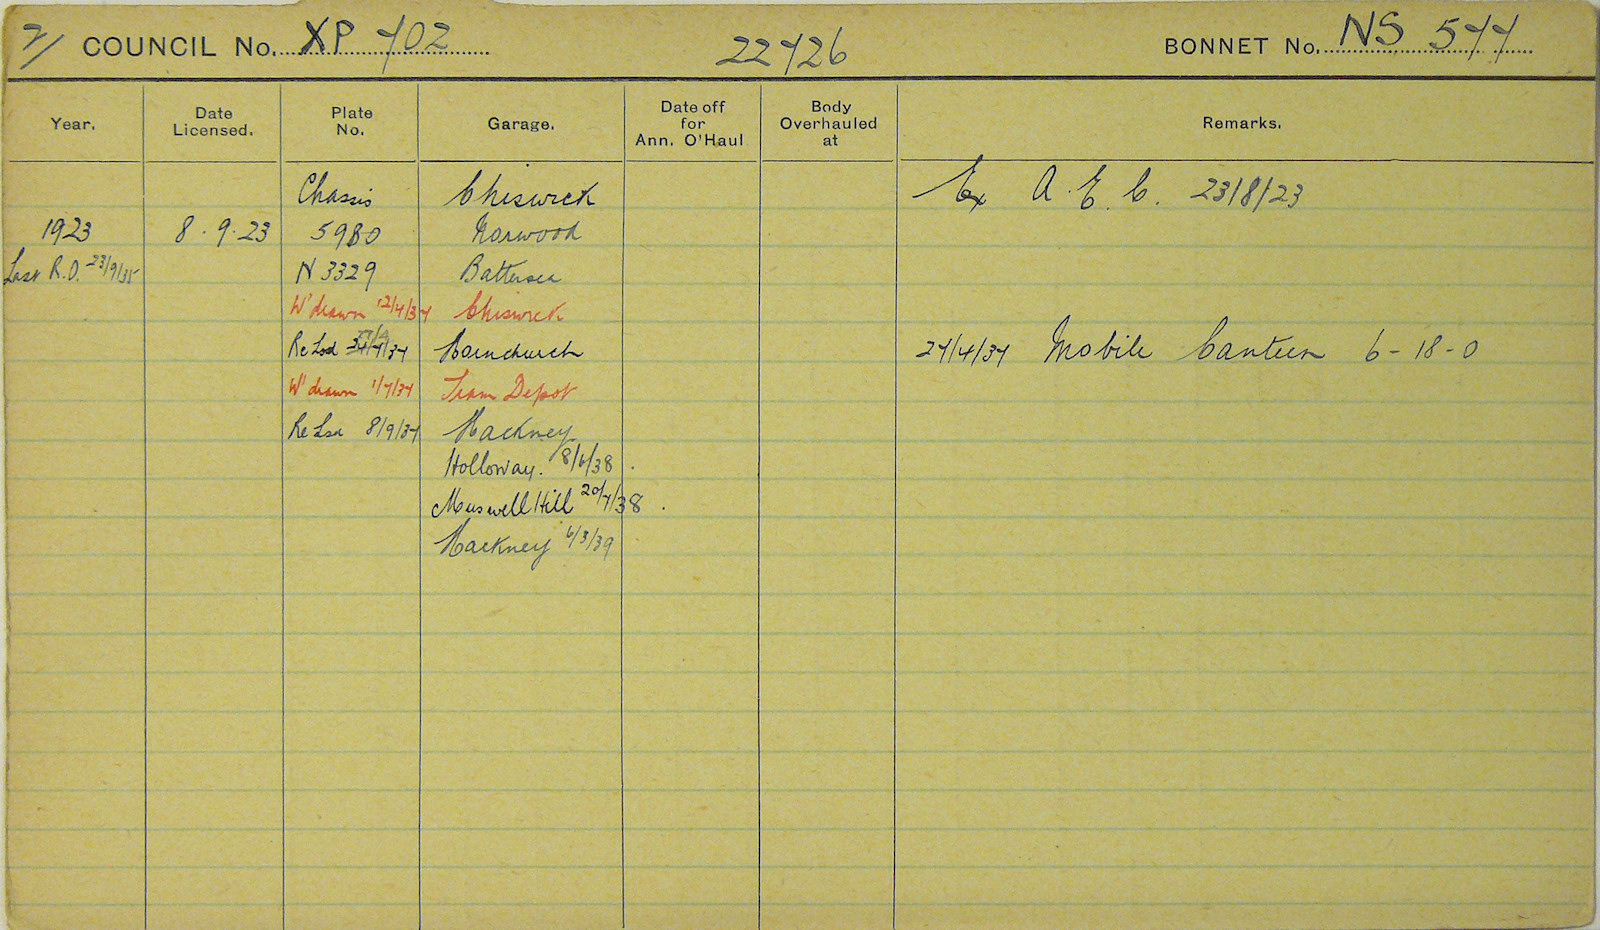 COUNCIL No. XP 702 22726 BONNET No. NS 577
Year. Date Licensed. Plate No. Garage. Date off for Ann. O'Haul Body Overhauled at Remarks.
Chassis Chiswick Ex A.E.C. 23/8/23
1923 8.9.23 5980 Norwood
Last R.D. 23/9/35 N 3329 Battersea
W'drawn 12/4/37 Chiswick
ReLsd /4/37 Hornchurch 27/4/37 Mobile Canteen 6-18-0
W'drawn 1/7/37 Tram Depot
ReLsd 8/9/37 Hackney
Holloway. 8/6/38.
Muswell Hill 20/7/38.
Hackney 6/3/39